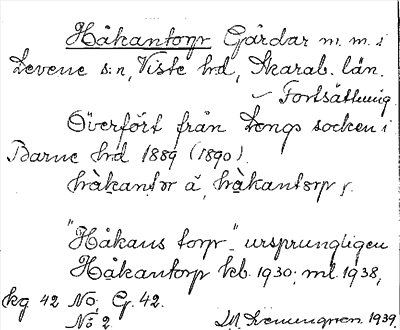 Håkantorp Gårdar m. m. i
Levene s:n, Viste hd, Skarab. län.
– Fortsättning
Överfört från Longs socken i
Barne hd 1889 (1890).
håkantor å, håkantorp y.
"Håkans torp" ursprungligen
Håkantorp kb. 1930; ml. 1938,
kg 42 No G. 42.
No 2
1939